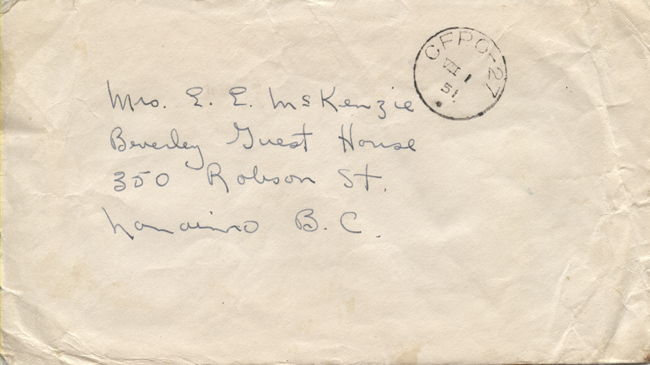 CFPO-27
VII 1
51
Mrs. E. E. McKenzie
Beverley Guest House
350 Robson St.
Nanaimo B.C.